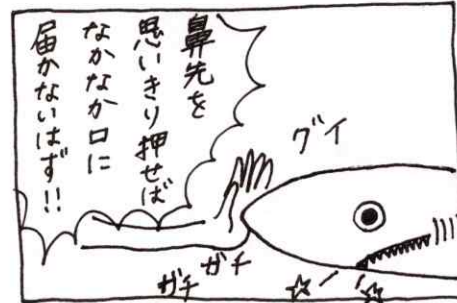 鼻先を
思いきり押せば
なかなか口に
届かないはず!!
グイ
ガチ
ガチ